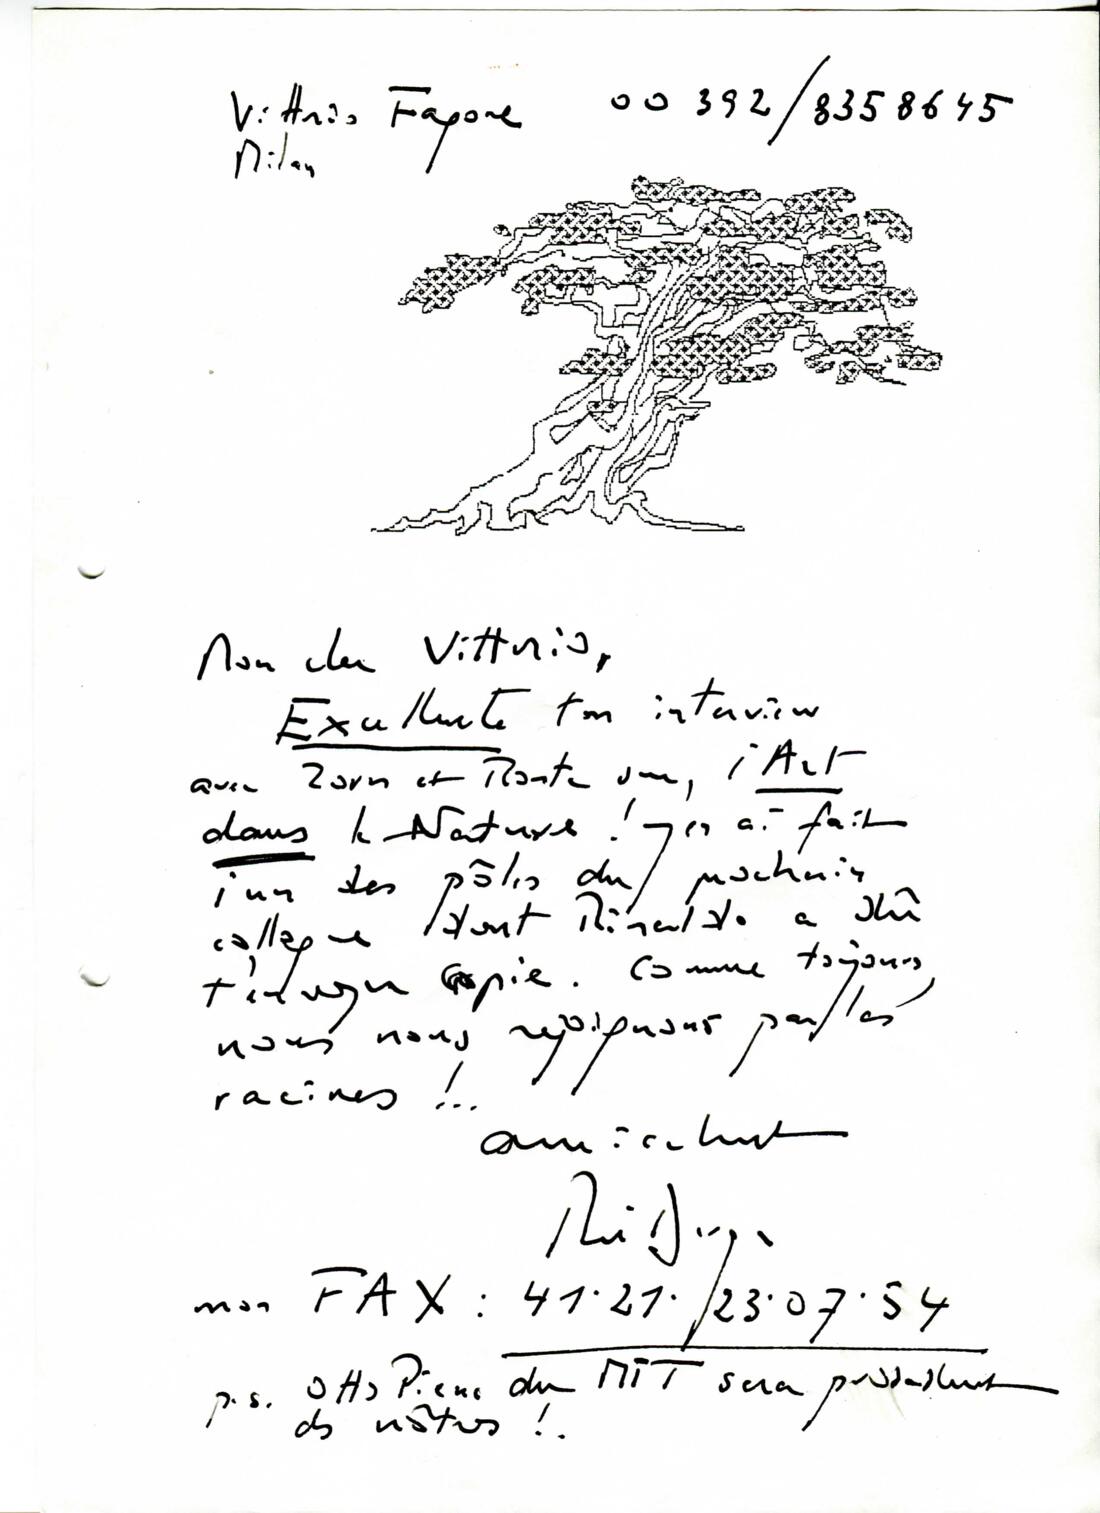 Vittorio Fagone 00 392/8358645
Milan
Mon cher Vittorio,
Excellente ton interview
avec Zorn et Monte sur, l'Art
dans la Nature ! j'en ai fait
l'un des pôles du prochain
colloque dont Rinaldo a dû
t'envoyer copie. Comme toujours,
nous nous rejoignons par les
racines !...
amicalement
mon FAX : 41.21./23.07.54
p.s. Otto Piene du MIT sera probablement
des nôtres !.